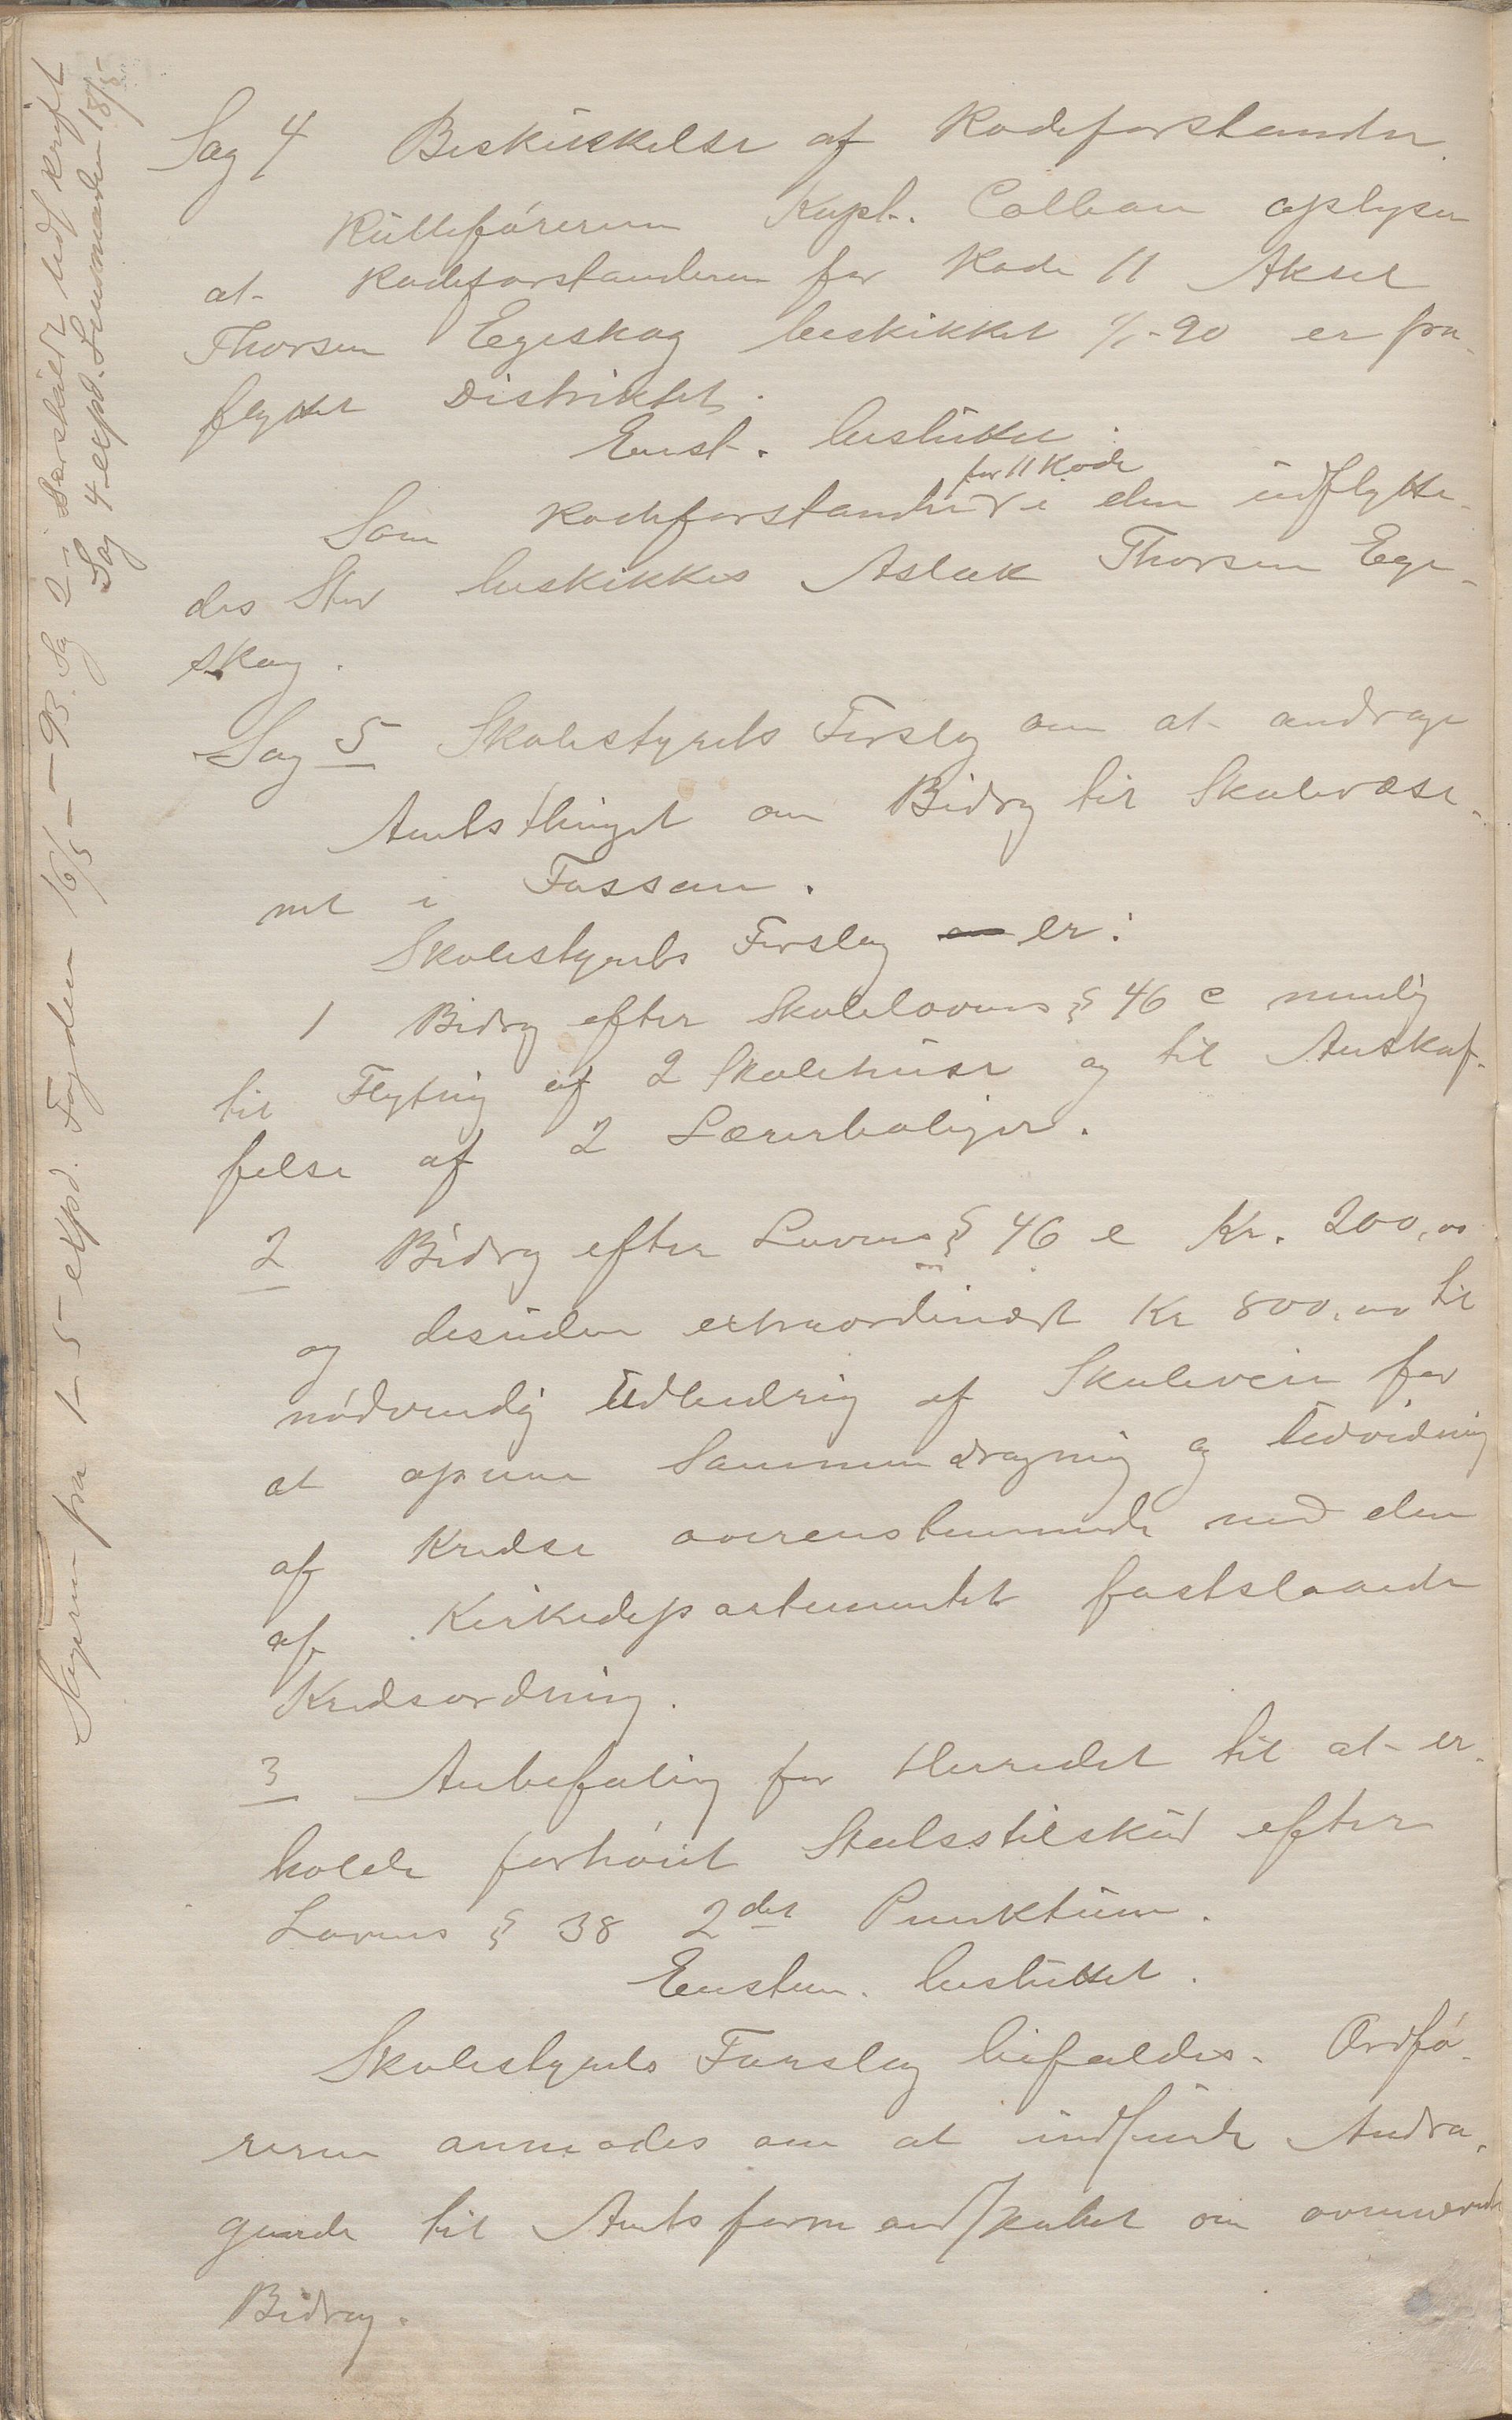 Sag 4 Beskikkelse af Rodeforstander.
Rulleføreren Kapt. Colban oplyser
at Rodeforstanderen for Rode 11 Aksel
Thorsen Egeskog beskikket 1/1-90 er fra-
flyttet Distriktet.
Enst. besluttet:
for 11 Rode
Som Rodeforstander i den udflytte-
des Sted beskikkes Aslak Thorsen Ege-
skog.
Sag 5 Skolestyrets Forslag om at andrage
Amtsthinget om Bidrag til Skolevæse-
net i Fossan.
Skolestyrets Forslag er:
1 Bidrag efter Skolelovens § 46 c nemlig
til Flytning af 2 Skolehuse og til Anskaf-
felse af 2 Lærerboliger.
2 Bidrag efter Lovens § 46 e Kr. 200,00
og desuden extraordinært Kr 800,00 til
nødvendig Udbedring af Skoleveie for
at opnaa Sammendragning og Udvidning
af Kredse overensstemmende med den
af Kirkedepartementet fastslaaede
Kredsordning.
3 Anbefaling for Herredet til at er-
holde forhøiet Statstilskud efter
Lovens § 38 2det Punktum.
Enstem. besluttet.
Skolestyrets Forslag bifaldes. Ordfø-
reren anmodes om at indsende Andra-
gende til Amtsformandskabet om ovennævnte
Bidrag.
Sagerne fra 1-5 expd. Fogden 16/5-93. Sag 2 særskildt Udskrift
Sag 4 expd. Lensmanden 18/5